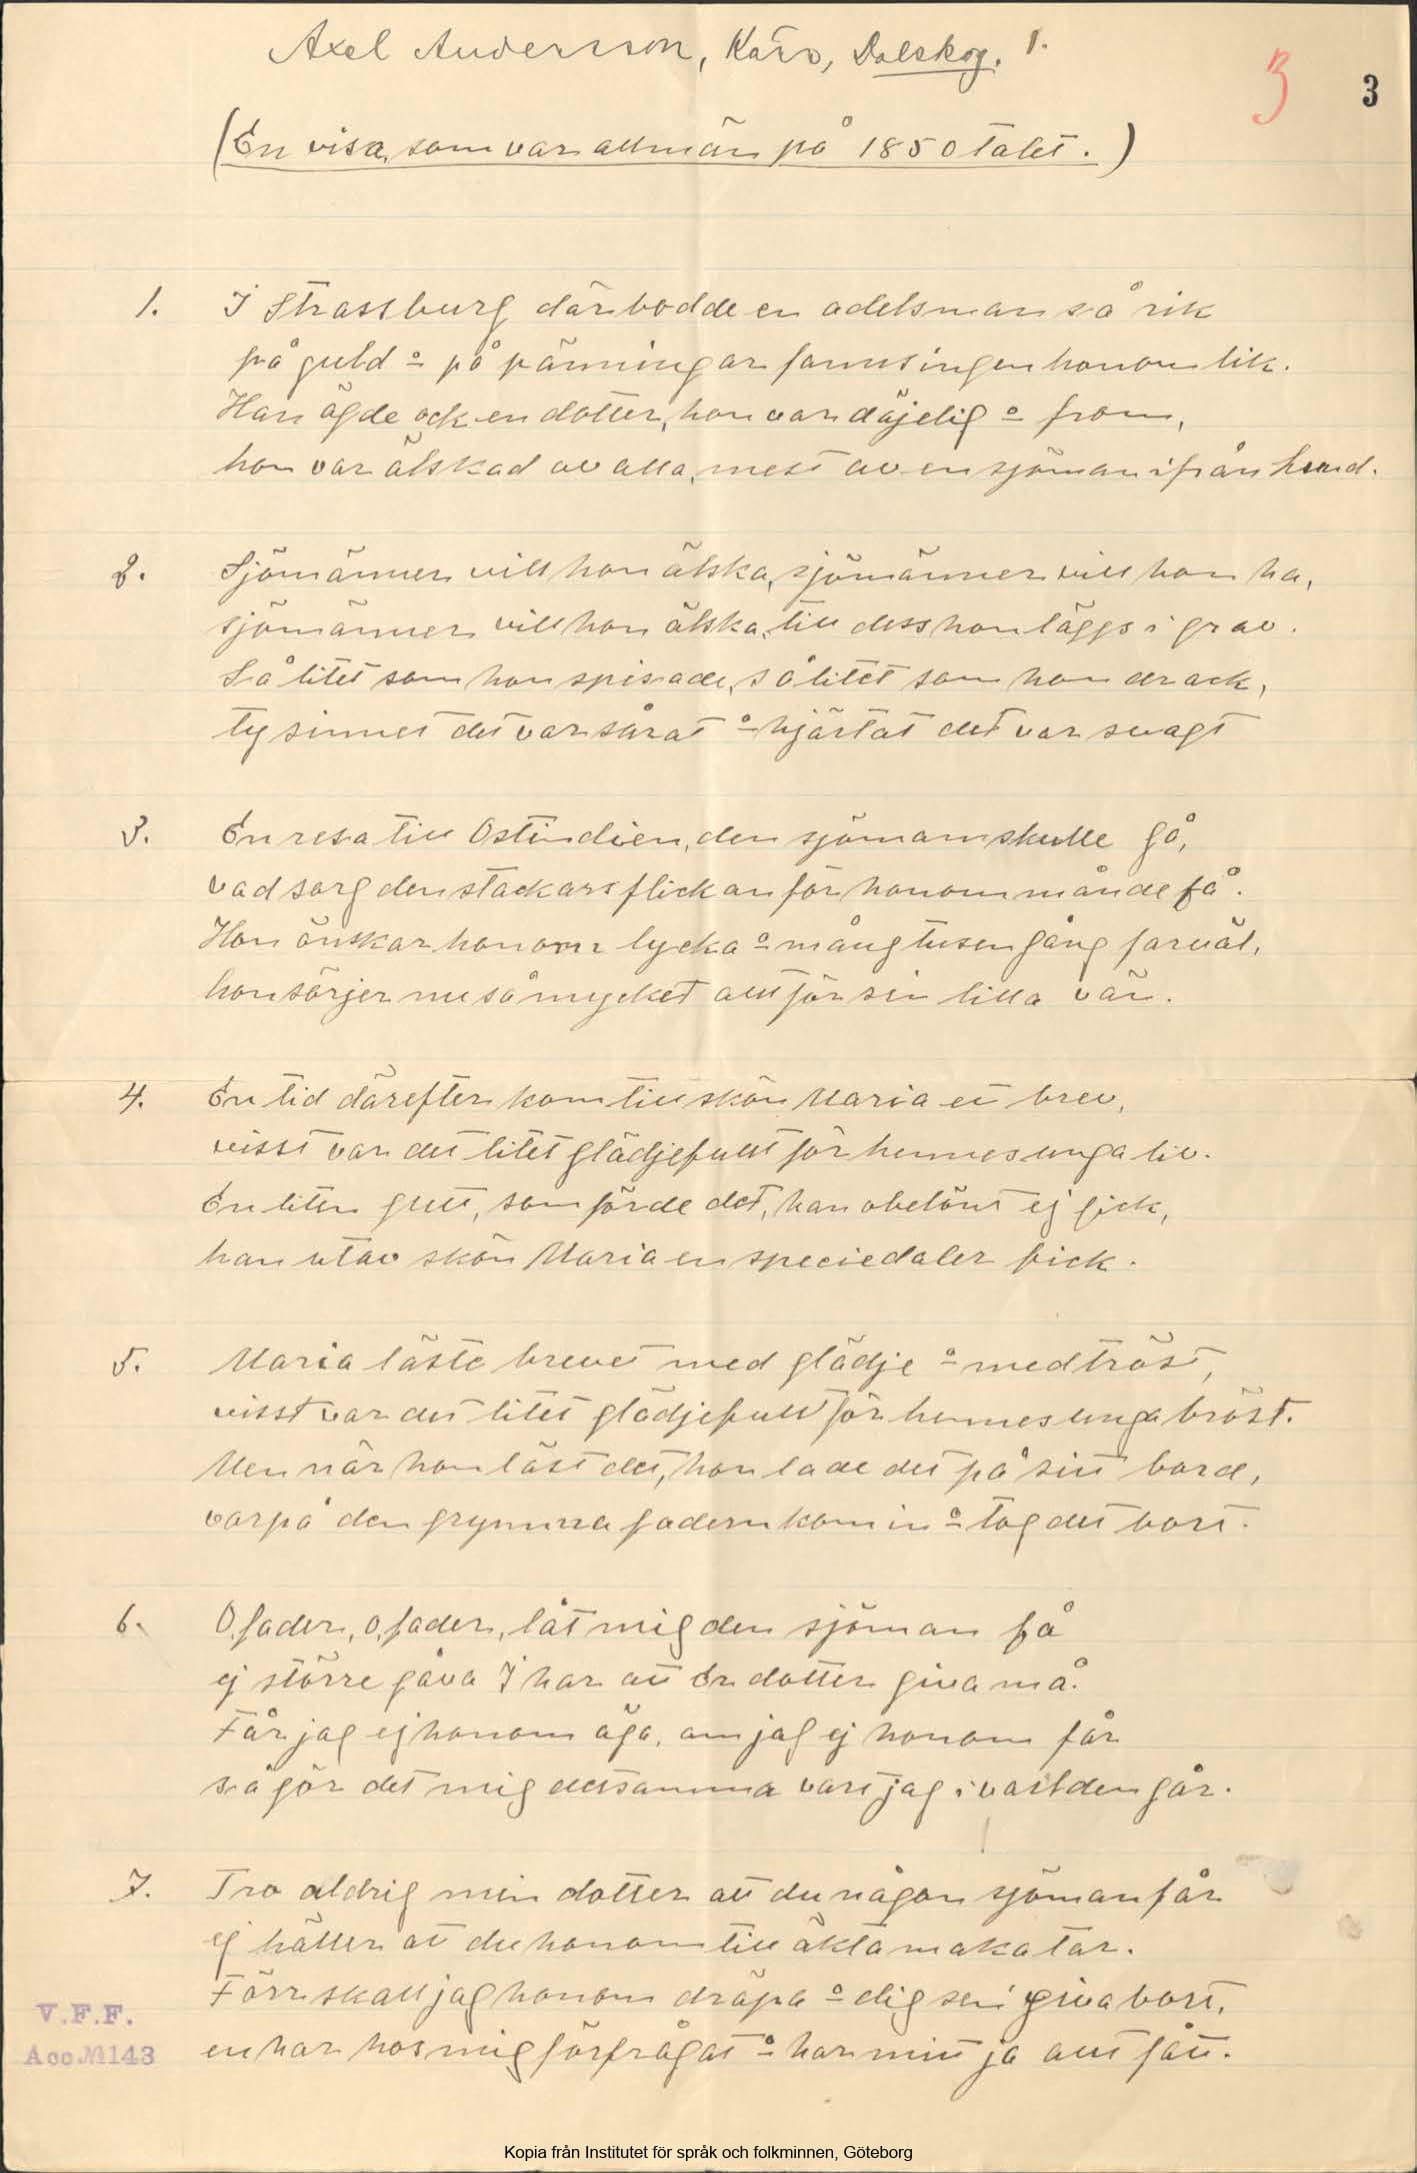 Axel Andersson, Kärr, Dalskog. 1.
3 3
(En visa, som var allmän på 1850 talet.)
1. I Strassburg där bodde en adelsman så rik
på guld o på pänningar fanns ingen honom lik.
Han ägde ock en dotter, hon var däjelig o from,
hon var älskad av alla, mest av en sjöman ifrån
2. Sjömänner vill hon älska, sjömänner vill hon ha,
sjömänner vill hon älska, till dess hon läggs i grav.
Så litet som hon spisade, så litet som hon drack,
ty sinnet det var sårat o hjärtat det var svagt
3. En resa till Ostindien, den sjöman skulle gå,
vad sorg den stackars flickan för honom månde få.
Hon önskar honom lycka o mång tusen gång farväl,
hon sörjer nu så mycket allt för sin lilla vän.
4. En tid därefter kom till skön Maria ett brev,
visst var det litet glädjefullt för hennes unga liv.
En liten gutt, som förde det, han obelönt ej gick,
han utav skön Maria en speciedaler fick.
5. Maria läste brevet med glädje o med tröst,
visst var det litet glädjefullt för hennes unga bröst.
Men när hon läst det, hon lade det på sitt bord,
varpå den grymma fadern kom in o tog det bort.
6. O, fader, o, fader, låt mig den sjöman få
ej större gåva I har att Er dotter giva må.
Får jag ej honom äga, om jag ej honom får
så gör det mig detsamma vart jag i världen går.
7. Tro aldrig min dotter att du någon sjöman får
ej häller att du honom till äkta maka tar.
Förr skall jag honom dräpa o dig sen giva bort,
en har hos mig förfrågat o har mitt ja allt fått.
V.F.F.
Acc. M143
Kopia från Institutet för språk och folkminnen, Göteborg